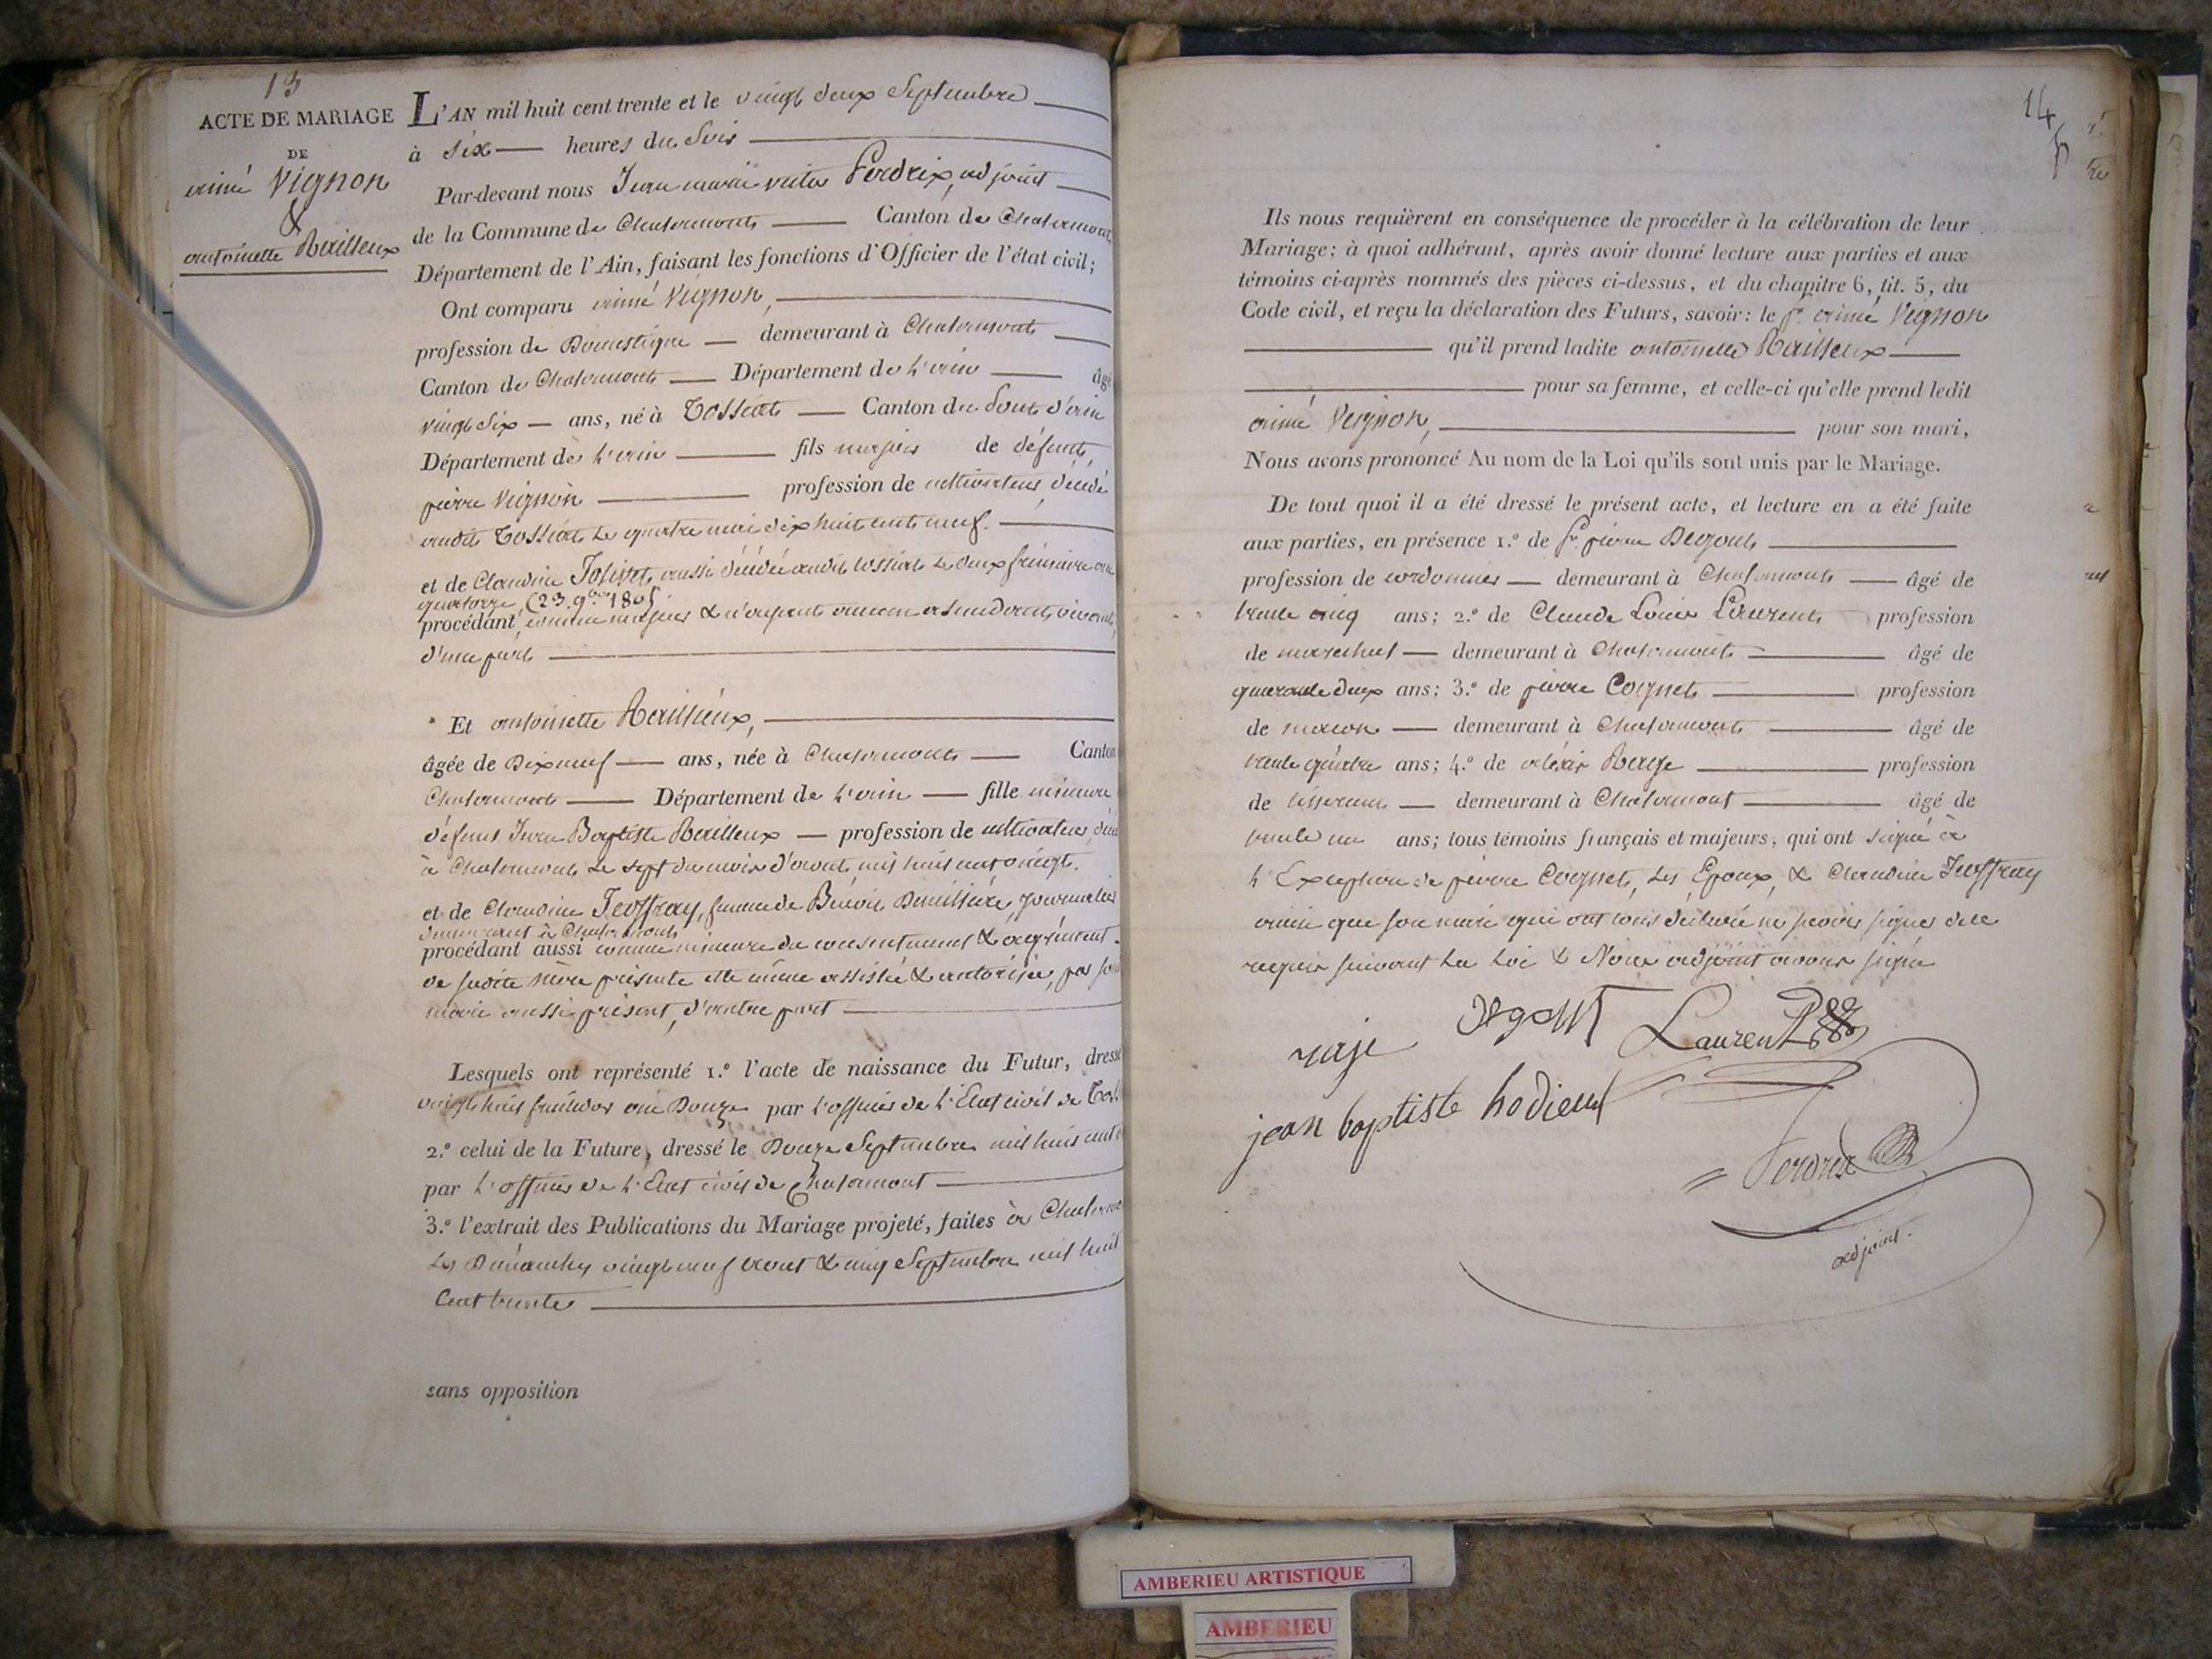 13
ACTE DE MARIAGE
DE
aimé Vignon
&
antoinette Railleux
L'AN mil huit cent trente et le vingt deux Septembre
à Six heures du Soir
Par-devant nous Jean marie victor Perdrix, adjoint
de la Commune de Chalamont Canton de Chalamont
Département de l'Ain, faisant les fonctions d'Officier de l'état civil;
Ont comparu aimé Vignon,
profession de Domestique demeurant à Chalamont
Canton de Chalamont Département de l'ain âgé
vingt Six ans, né à Tossiat Canton du Pont d'ain
Département de l'ain fils majeur de défunt
pierre Vignon profession de cultivateur, décédé
audit Tossiat Le quatre mai dix huit cent neuf.
et de Claudine aussi décédée audit tossiat Le deux frimaire an
quatorze, (23. 9bre 1805
procédant, comme majeur & n'ayant aucun ascendant vivant,
d'une part
Et antoinette Railleux,
âgée de Dix neuf ans, née à Chalamont Canton
Chalamont Département de l'ain fille mineure
défunt Jean Baptiste Railleux profession de cultivateur,
à Chalamont Le Sept du mois d'aout mil huit cent vingt.
et de Claudine Jeoffray, femme de Benoit journalier
demeurant à Chalamont
procédant aussi comme mineure du consentement & agrément
de sadite mère présente elle même assistée & autorisée, par son
mari aussi présent, d'autre part
Lesquels ont représenté 1.° l'acte de naissance du Futur, dressé
vingt huit fructidor an Douze par l'officier de l'Etat civil de
2.° celui de la Future, dressé le Douze Septembre mil huit cent
par l'officier de l'Etat civil de Chalamont
3.° l'extrait des Publications du Mariage projeté, faites à
Les Dimanches vingt neuf aout & cinq Septembre mil huit
Cent trente
sans opposition
14
Ils nous requièrent en conséquence de procéder à la célébration de leur
Mariage; à quoi adhérant, après avoir donné lecture aux parties et aux
témoins ci-après nommés des pièces ci-dessus, et du chapitre 6, tit. 5, du
Code civil, et reçu la déclaration des Futurs, savoir: le Sr. aimé Vignon
qu'il prend ladite antoinette Railleux
pour sa femme, et celle-ci qu'elle prend ledit
aimé Vignon, pour son mari,
Nous avons prononcé Au nom de la Loi qu'ils sont unis par le Mariage.
De tout quoi il a été dressé le présent acte, et lecture en a été faite
aux parties, en présence 1.° de Sr. pierre Degout
profession de cordonnier demeurant à Chalamont âgé de
trente cinq ans; 2.° de Claude Louis Laurent profession
de marechal demeurant à Chalamont âgé de
quarante deux ans; 3.° de pierre Cognet profession
de macon demeurant à Chalamont âgé de
trente quatre ans; 4.° de alexis Raye profession
de tisserand demeurant à Chalamont âgé de
trente un ans; tous témoins français et majeurs, qui ont signé à
l'Exception de pierre Cognet, Les Epoux, & Claudine Jeoffray
ainsi que son mari qui ont tous déclaré ne savoir signer de ce
requis suivant La Loi & Nous adjoint avons signé
raje degout Laurent
jean baptiste hodieux
Perdrix
adjoint.
AMBERIEU ARTISTIQUE
AMBERIEU